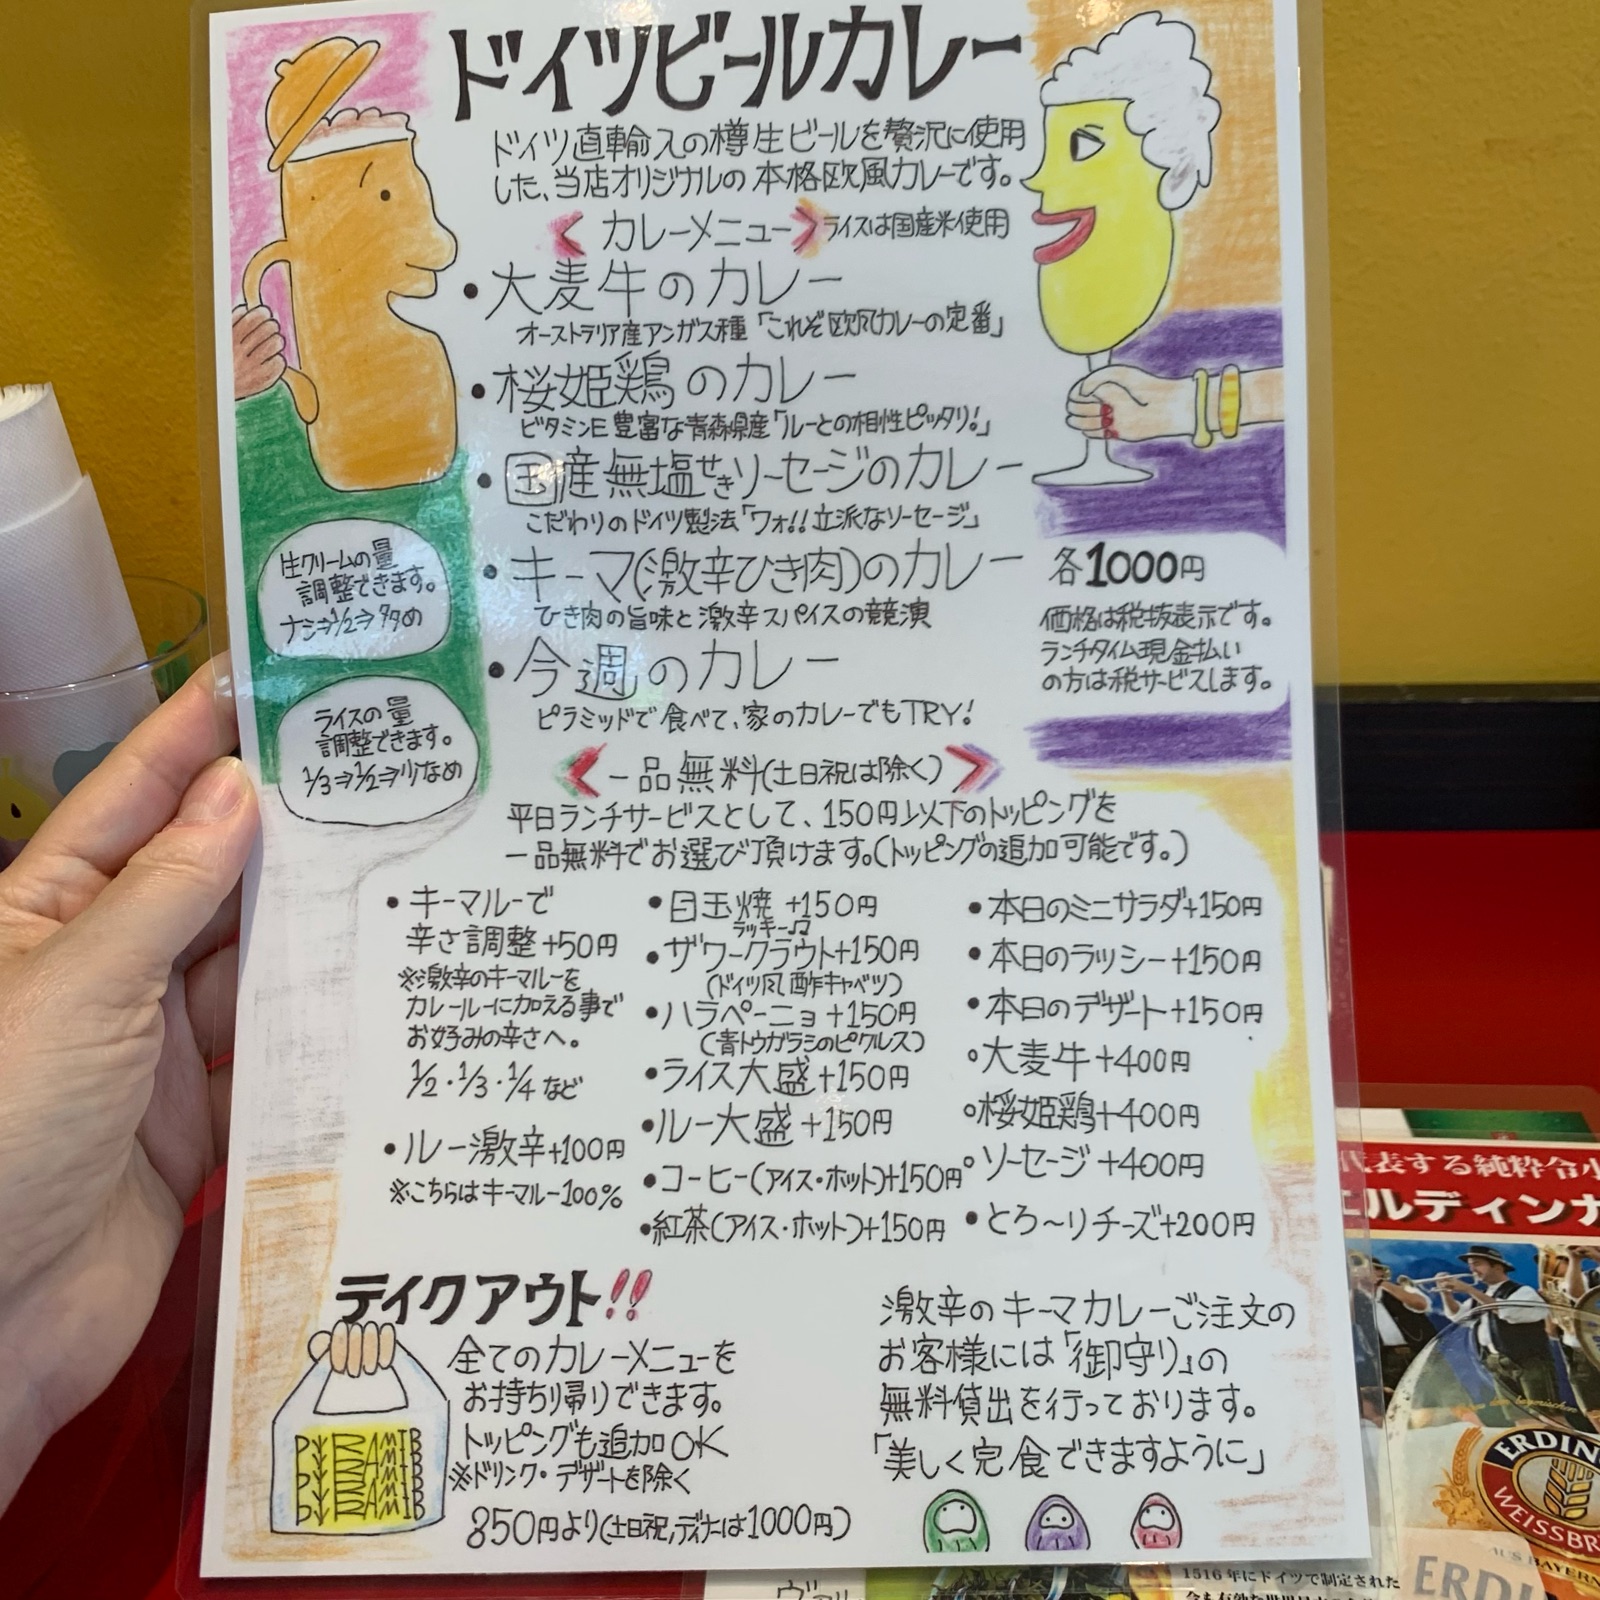 ドイツビールカレー
ドイツ直輸入の樽生ビールを贅沢に使用
した、当店オリジナルの本格欧風カレーです。
カレーメニュー ライスは国産米使用
・大麦牛のカレー
オーストラリア産アンガス種「これぞ欧風カレーの定番」
・桜姫鶏のカレー
ビタミンE豊富な青森県産「ルーとの相性ピッタリ!」
・国産無塩せきソーセージのカレー
こだわりのドイツ製法「ワォ!!立派なソーセージ」
・キーマ(激辛ひき肉)のカレー
ひき肉の旨味と激辛スパイスの競演
・今週のカレー
ピラミッドで食べて、家のカレーでもTRY!
各1000円
価格は税抜表示です。
ランチタイム現金払い
の方は税サービスします。
生クリームの量
調整できます。
ナシ⇒1/2⇒多め
ライスの量
調整できます。
1/3⇒1/2⇒少なめ
一品無料(土日祝は除く)
平日ランチサービスとして、150円以下のトッピングを
一品無料でお選び頂けます。(トッピングの追加可能です。)
・キーマルーで
辛さ調整+50円
※激辛のキーマルーを
カレールーに加える事で
お好みの辛さへ。
1/2・1/3・1/4など
・ルー激辛+100円
※こちらはキーマルー100%
・目玉焼+150円
ラッキー♫
・ザワークラウト+150円
(ドイツ風酢キャベツ)
・ハラペーニョ+150円
(青トウガラシのピクルス)
・ライス大盛+150円
・ルー大盛+150円
・コーヒー(アイス・ホット)+150円
・紅茶(アイス・ホット)+150円
・本日のミニサラダ+150円
・本日のラッシー+150円
・本日のデザート+150円
°大麦牛+400円
°桜姫鶏+400円
°ソーセージ+400円
・とろ〜りチーズ+200円
テイクアウト!!
全てのカレーメニューを
お持ち帰りできます。
トッピングも追加OK
※ドリンク・デザートを除く
850円より(土日祝,ディナーは1000円)
激辛のキーマカレーご注文の
お客様には「御守り」の
無料貸出を行っております。
「美しく完食できますように」
代表する純粋令
エルディンガ
ERDIN
WEISSBR
AUS BAYERN
1516年にドイツで制定された
ERDI